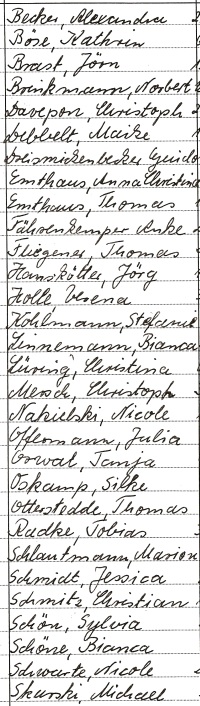 Becker, Alexandra
Böse, Kathrin
Brast, Jörn
Brinkmann, Norbert
Davepon, Christoph
Debbelt, Maike
Dreismickenbecker Guido
Emthaus, Anna Christina
Emthaus, Thomas
Fährenkemper Anke
Fliegener, Thomas
Hanskötter, Jörg
Holle Verena
Kohlmann, Stefanie
Linnemann, Bianca
Lüring, Christina
Mersch, Christoph
Nakielski, Nicole
Offermann, Julia
Orwat, Tanja
Oskamp, Silke
Otterstedde, Thomas
Radke, Tobias
Schlautmann, Marion
Schmidt, Jessica
Schmitz, Christian
Schön, Sylvia
Schöne, Bianca
Schwarte, Nicole
Skurski, Michael